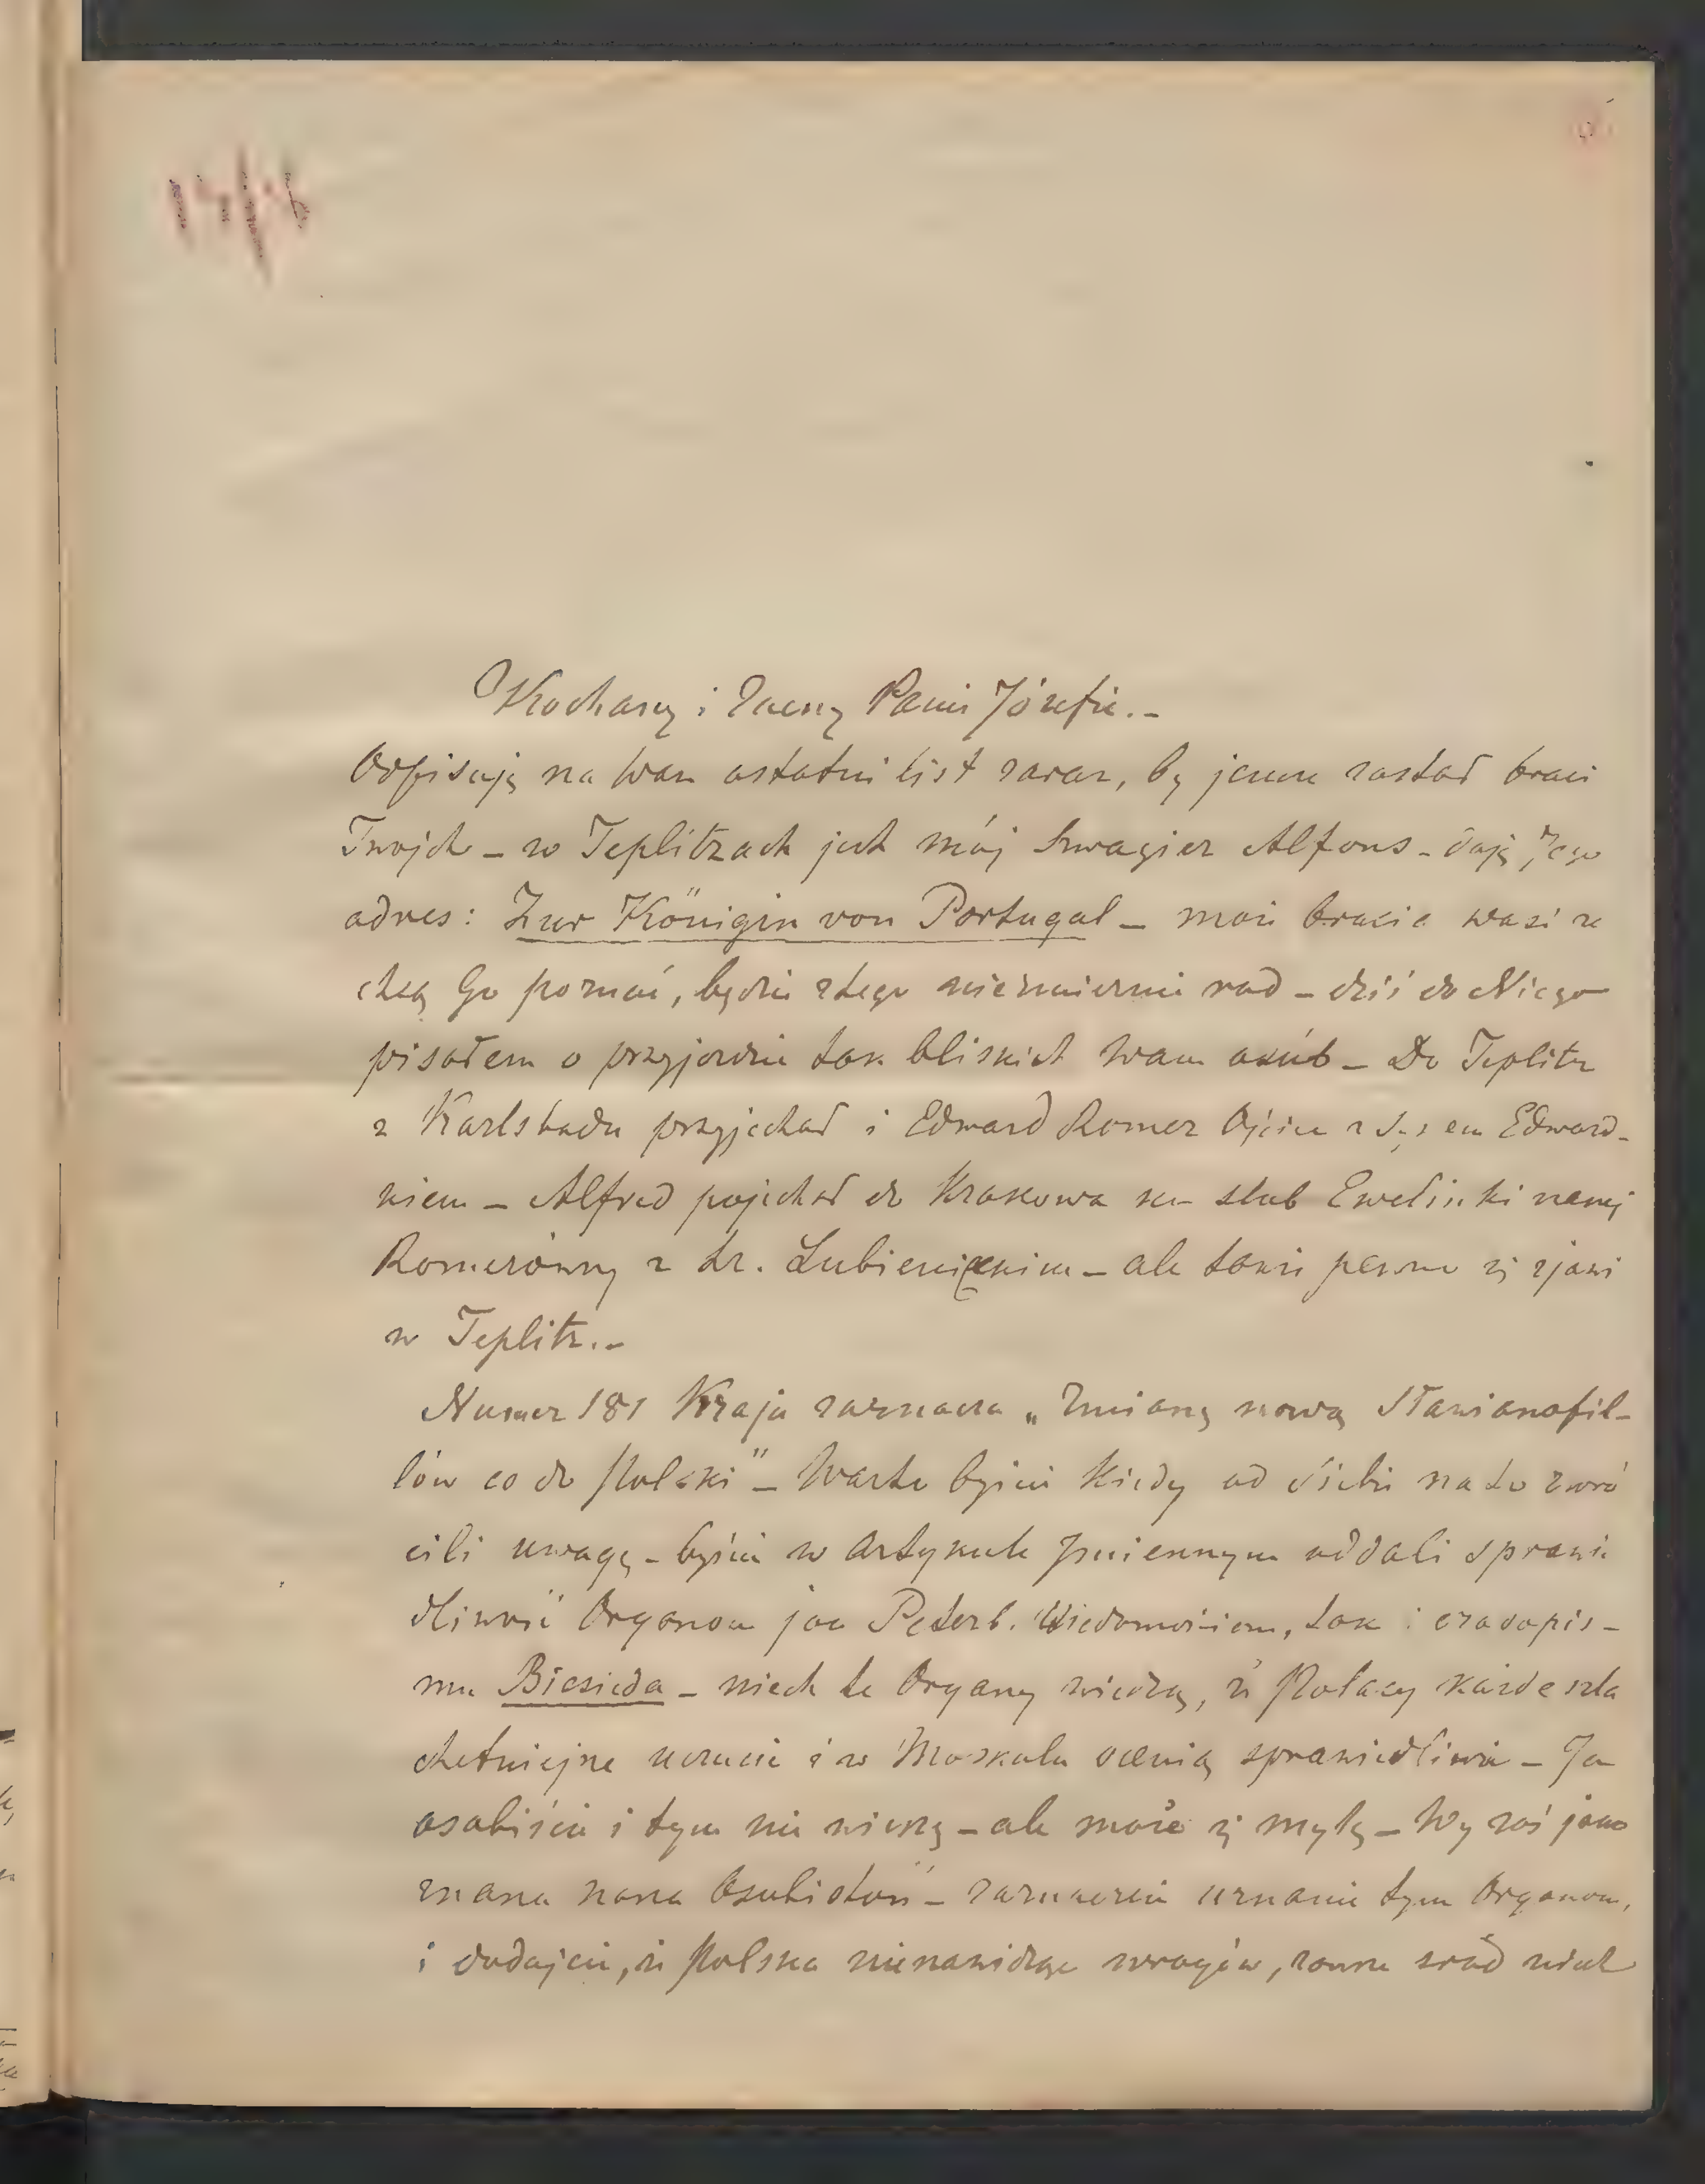 Kochany i Zacny Panie Józefie.-
Odpisuję na Wasz ostatni list zaraz, by jeszcze zastał braci
Twojch – w Teplitzach jest mój Szwagier Alfons – daję Jego
adres: Zur Königin von Portugal – może bracia wasi ze
chcą Go poznać, będzie ztego niezmiernie rad – dziś do Niego
pisałem o przyjeździe tak bliskich Wam osób – Do Teplitz
z Karlsbadu przyjechał i Edward Romer Ojciec z Synem Edward-
kiem – Alfred pojechał do Krakowa na ślub Ewelinki naszej
Romerówny z hr. Łubieńskim – ale także pewno zjawi
w Teplitz.-
Numer 181 Kraju zaznacza „Zmianę nową Sławianofil-
lów co do Polski" – Warto byście kiedy od siebie na to zwró
cili uwagę – byście w Artykule Jmiennym oddali sprawie
dliwość Organom jak Peterb. Wiedomościom, tak i czasopis-
mu Biesieda – niech te Organy wiedzą, że Polacy każde szla
chetniejsze uczucie i w Moskalu ocenią sprawiedliwie – Ja
osobiście i tym nie wierzę – ale może się mylę – Wy zaś jako
znana nasza Osobistość – zaznaczcie uznanie tym Organom,
i dodajcie, że Polska nienawidząc wrogów, zawsze śród